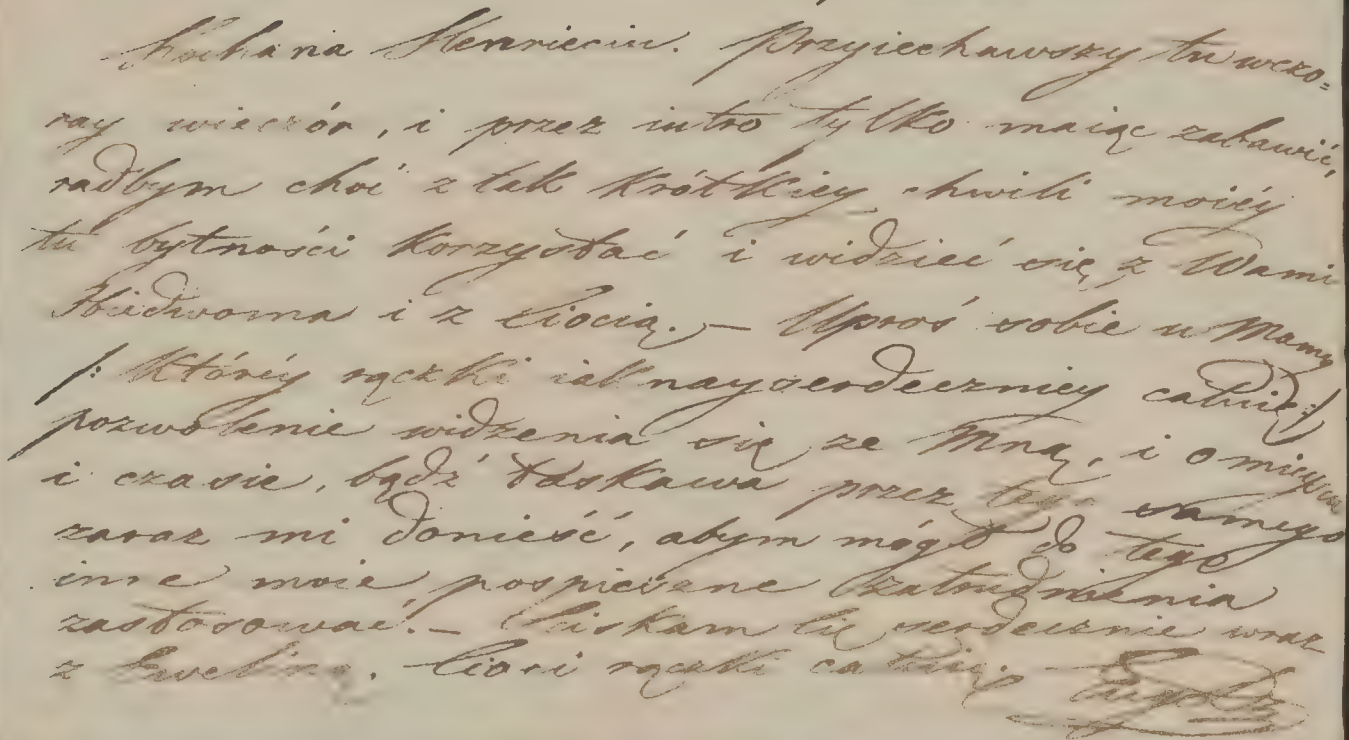 Kochana Henrieciu. Przyiechawszy tu wczo=
ray wieczór, i przez iutro tylko maiąc zabawić,
radbym choć z tak krótkiey chwili moiéy
tu bytności korzystać i widzieć się z Wami
Obiedwoma i z Ciocią. — Uproś sobie u Mamy
/: któréy rączki iak nayserdeczniey całuię :/
pozwolenie widzenia się ze Mną, i o mieyscu
i czasie, bądź łaskawa przez tego samego
zaraz mi donieść, abym mógł do tego
inne moie pospieszne zatrudnienia
zastosować. — Ściskam Cię serdecznie wraz
z Eweliną. Cioci rączki całuię. —